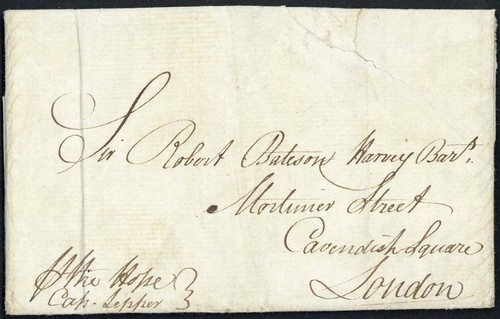 Sir Robert Bateson Harvey Bart.
Mortimer Street
Cavendish Square
London
the Hope
Cap. Lepper